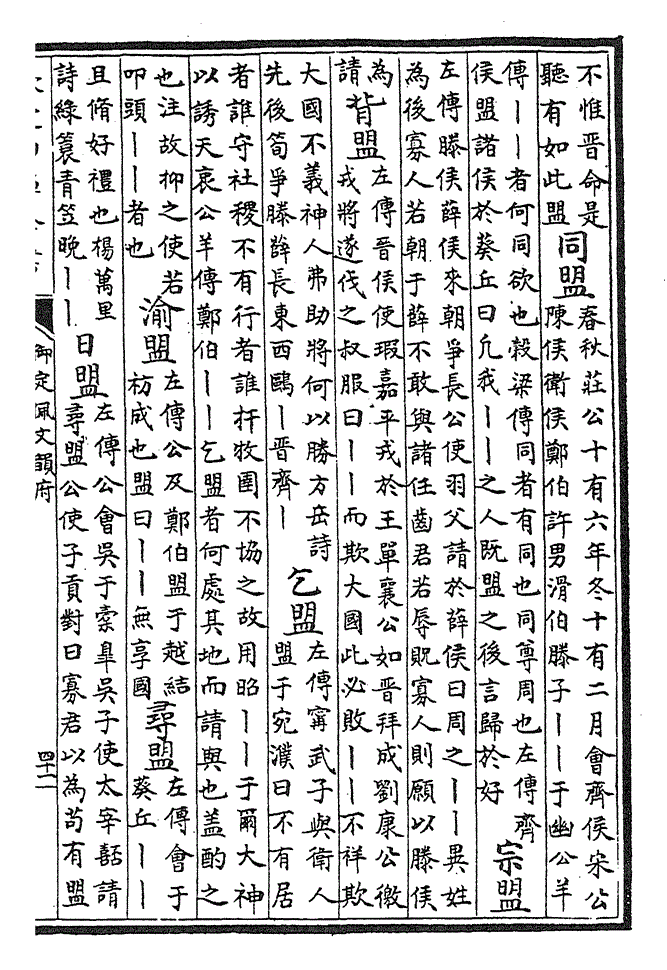 不惟晋命是
聽有如此盟
同盟
春秋莊公十有六年冬十有二月會齊侯宋公
陳侯衛侯鄭伯許男滑伯滕子丨丨于幽公羊
傳丨丨者何同欲也穀梁傳同者有同也同尊周也左傳齊
侯盟諸侯於葵丘曰凡我丨丨之人既盟之後言歸於好
宗盟
左傳滕侯薛侯來朝爭長公使羽父請於薛侯曰周之丨丨異姓
為後寡人若朝于薛不敢與諸任齒君若辱貺寡人則願以滕侯
為
請
背盟
左傳晋侯使瑕嘉平戎於王單襄公如晋拜成劉康公徼
戎將遂伐之叔服曰丨丨而欺大國此必敗丨丨不祥欺
大國不義神人弗助將何以勝方岳詩
先後荀爭滕薛長東西鷗丨晋齊丨
乞盟
左傳甯武子與衛人
盟于宛濮曰不有居
者誰守社稷不有行者誰扞牧圉不協之故用昭丨丨于爾大神
以誘天衷公羊傳鄭伯丨丨乞盟者何處其地而請與也盖酌之
也注故抑之使若
叩頭丨丨者也
渝盟
左傳公及鄭伯盟于越結
枋成也盟曰丨丨無享國
尋盟
左傳會于
葵丘丨丨
且脩好禮也楊萬里
詩綠蓑青笠晚丨丨
日盟
左傳公會吳于橐臯吳子使太宰嚭請
尋盟公使子貢對曰寡君以為苟有盟
御定佩文韻府
四十二